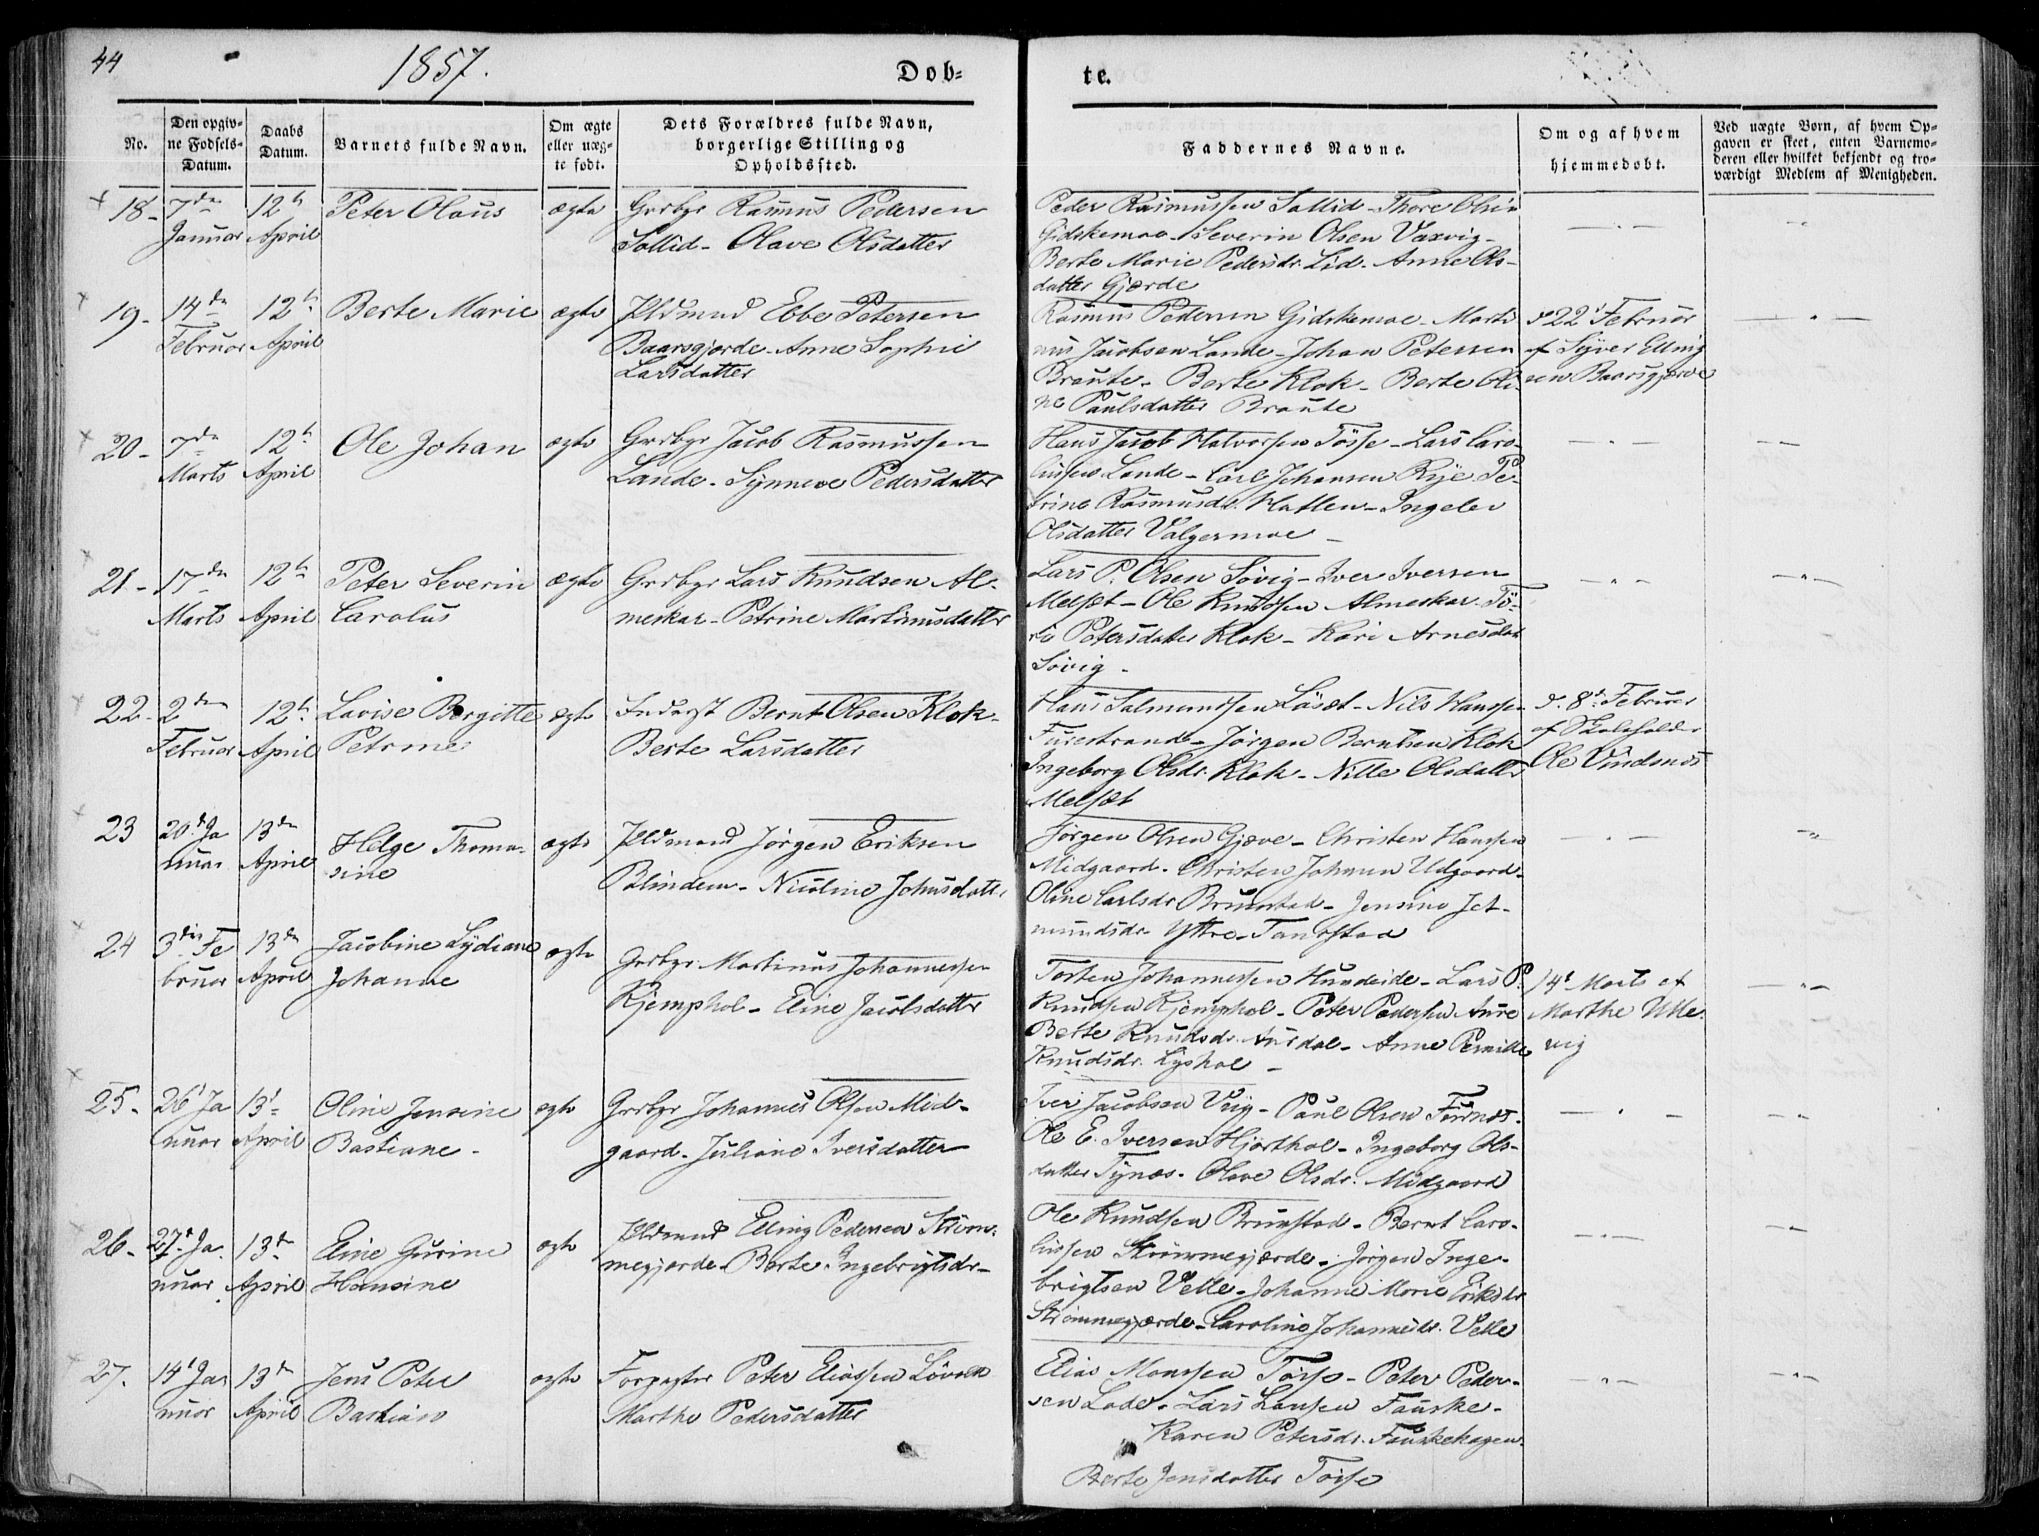 44
1857.
Dob=
te.
No.
Den opgiv=
ne Fødsels=
Datum.
Daabs
Datum.
Barnets fulde Navn.
Om ægte
eller uæg=
te født.
Dets Forældres fulde Navn,
borgerlige Stilling og
Opholdssted.
Faddernes Navne.
Om og af hvem
hjemmedøbt.
Ved uægte Børn, af hvem Op=
gaven er skeet, enten Barnemo=
deren eller hvilket bekjendt og tro=
værdigt Medlem af Menigheden.
18- 7de 12te Peter Olaus ægte Grdbgr Rasmus Pedersen
Januar April Sollid- Olave Olsdatter
Peder Rasmussen Sollid- Thore Olsen
Gidskemoe- Severin Olsen Vaxvig-
Berte Marie Pedersdr. Lid- Anne Ols-
datter Gjærde
19- 14de 12te Berte Marie ægte Pldsmand Ebbe Petersen
Februar April Baarsgjærde- Anne Sophie
Larsdatter
Rasmus Pedersen Gidskemoe- Marti
nus Jacobsen Lande- Johan Petersen
Braute- Berte Klok- Berte Oli-
ne Paulsdatter Braute
22' Februar
af Syver Elling
sen Baarsgjærde
20- 7de 12te Ole Johan ægte Grdbgr Jacob Rasmussen
Marts April Lande- Synneve Pedersdatter
Hans Jacob Halvorsen Tøsse- Lars Caro-
liussen Lande- Carl Johansen Rye- Pe-
trine Rasmusdr. Hatlen- Ingelev
Olsdatter Valgermoe-
21- 17de 12te Peter Severin ægte Grdbgr Lars Knudsen Al-
Marts April Carolus meskar- Petrine Martinusdatter
Lars P. Olsen Søvig- Iver Iversen
Melsæt- Ole Knudsen Almeskar- Tø-
re Petersdatter Klok- Kari Arnesdatt
Søvig-
22- 2den 12te Lovise Bergitte ægte Inderst Bernt Olsen Klok-
Februar April Petrine Berte Larsdatter
Hans Salmundsen Løset- Nils Hansse
Furestrand- Jørgen Berntsen Klok
Ingeborg Olsdr. Klok- Nille Olsdatter
Melsæt
d. 8de Februar
af Skoleholder
Ole Vindsnes
23 20d Ja 13de Helge Thoma- ægte Pldsmand Jørgen Eriksen
nuar April sine Blindem- Nicoline Johnsdatter
Jørgen Olsen Gjæve- Christen Hanssen
Midgaard- Christen Johnsen Udgaard-
Oline Carlsdr. Brunstad- Jensine Jet-
mundsdr. Yttre-Tandstad
24 3die Fe 13de Jacobine Lydiane ægte Grdbgr. Martinus Johannessen
bruar April Johanne Kjemphol- Eline Jacobsdatter
Torsten Johannessen Hundeide- Lars P.
Knudsen Kjemphol- Peter Pedersen Aure
Berte Knudsdr. Aurdal- Anne Pernille
Knudsdr. Lyshol-
14d Marts af
Marthe Ulle-
vig
25- 26' Ja 13' Oline Jensine ægte Grdbgr Johannes Olsen Mid-
nuar April Bastiane- gaard- Juliane Iversdatter
Iver Jacobsen Viig- Paul Olsen Furnæs-
Ole E. Iversen Hjorthol- Ingeborg Ols-
datter Tynæs- Olave Olsdr. Midgaard
26- 27d Ja- 13de Eline Gurine ægte Pldsmand Elling Pedersen Strøm-
nuar April Hansine megjærde- Berte Ingebrigtsdr-
Ole Knudsen Brunstad- Bernt Caro-
liussen Strømmegjærde- Jørgen Inge-
brigtsen Velle- Johanne Marie Eriksdr
Strømmegjærde- Caroline Johannesdr. Velle
27. 14d Jan 13de Jens Peter ægte Forpagter Peter Eliassen Løvold
nuar April Bastian Marthe Pedersdatter
Elias Monssen Tøsse- Peter Peder-
sen Lade- Lars Larssen Fauske-
Karen Petersdr. Fauskehagen-
Berte Jensdatter Tøsse